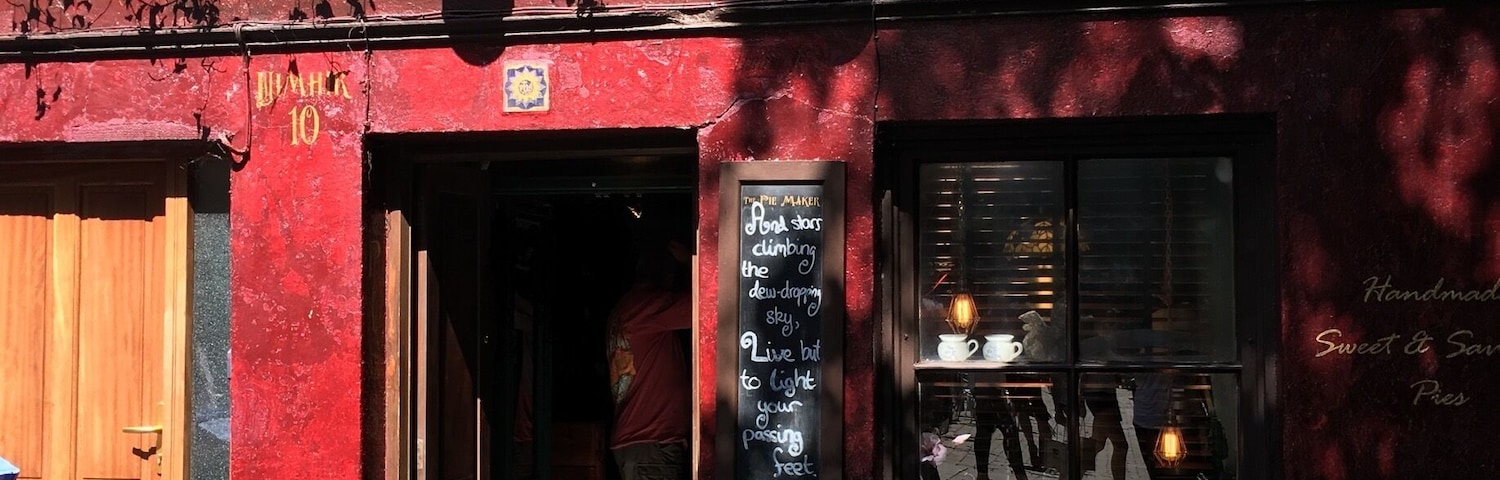 UIMHIR
10
THE PIE MAKER
And stars
climbing
the
dew-dropping
sky,
Live but
to light
your
passing
feet.
Handmad
Sweet & Sav
Pies